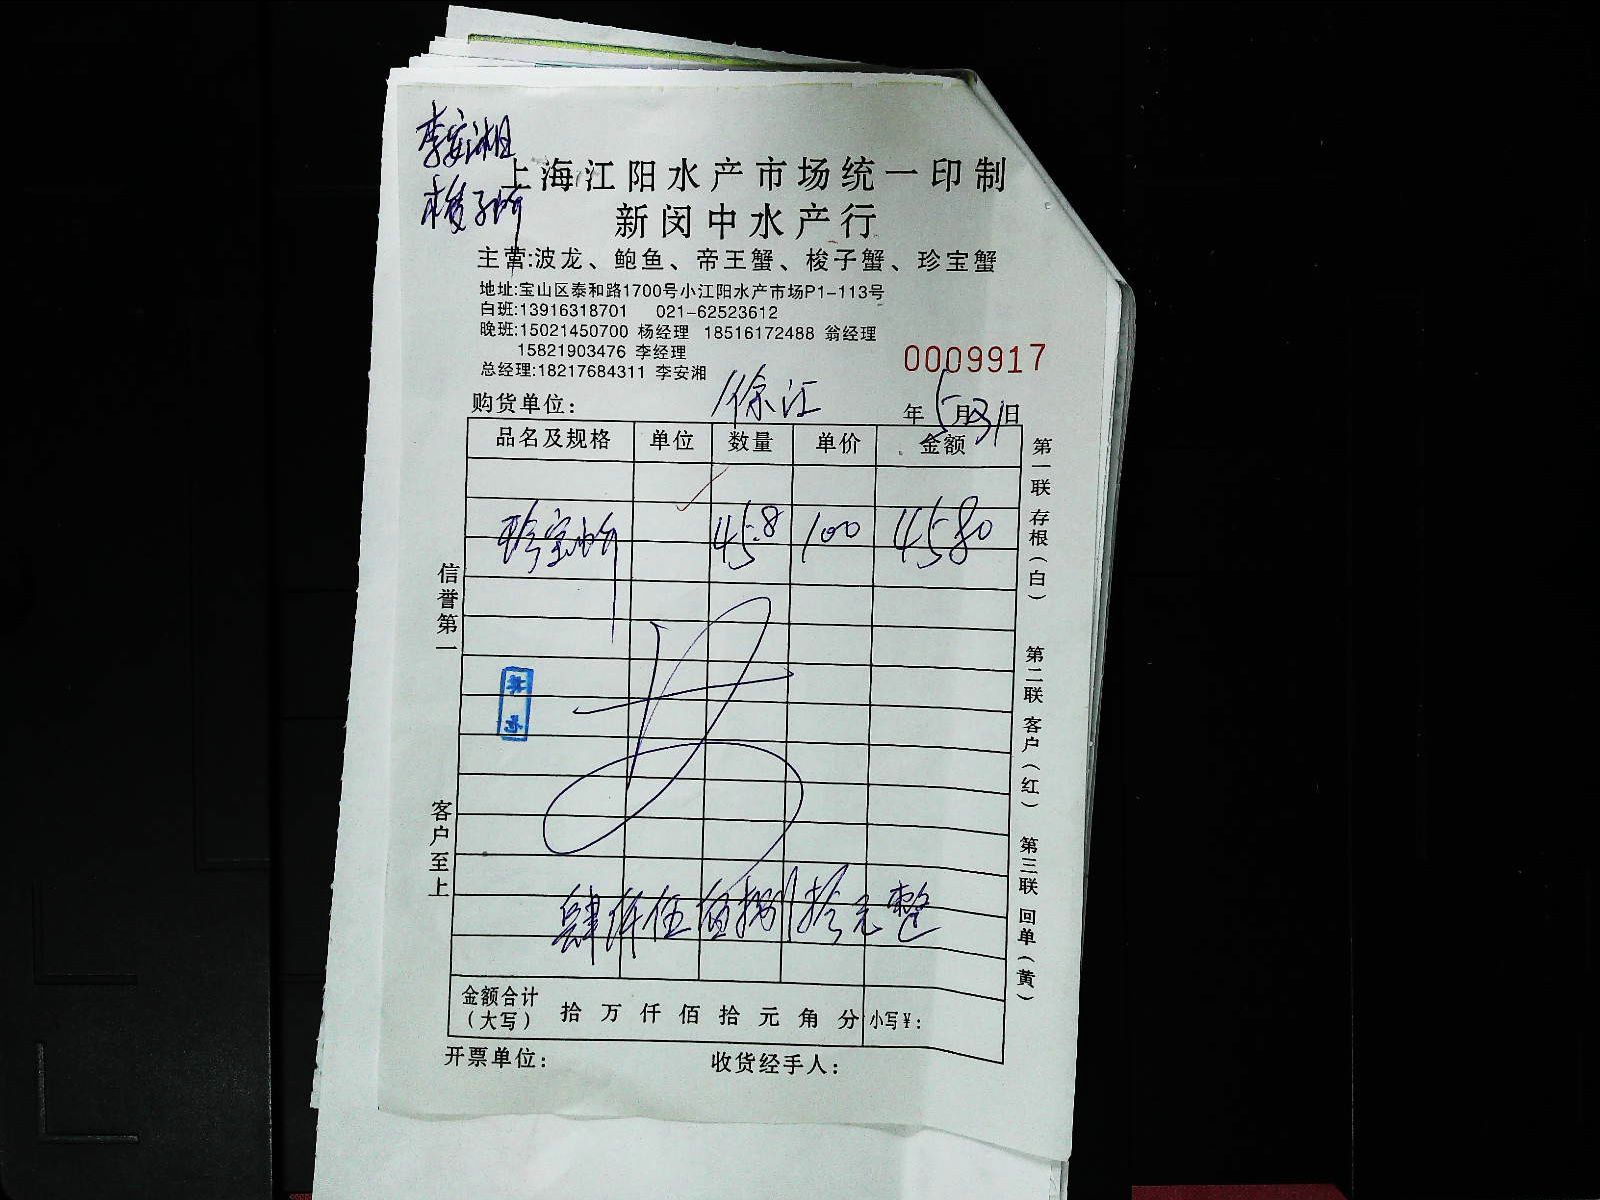 李安湘
梭子蚧
上海江阳水产市场统一印制
新闵中水产行
主营:波龙、鲍鱼、帝王蟹、梭子蟹、珍宝蟹
地址:宝山区泰和路1700号小江阳水产市场P1-113号
白班:13916318701 021-62523612
晚班:15021450700 杨经理 18516172488 翁经理
15821903476 李经理
总经理:18217684311 李安湘
0009917
购货单位: 徐汇 年5月31日
品名及规格 单位 数量 单价 金额
珍宝蚧 45.8 100 4580
肆仟伍佰捌拾元整
金额合计
(大写) 拾 万 仟 佰 拾 元 角 分 小写¥:
开票单位: 收货经手人:
信誉第一
客户至上
第一联 存根(白)
第二联 客户(红)
第三联 回单(黄)